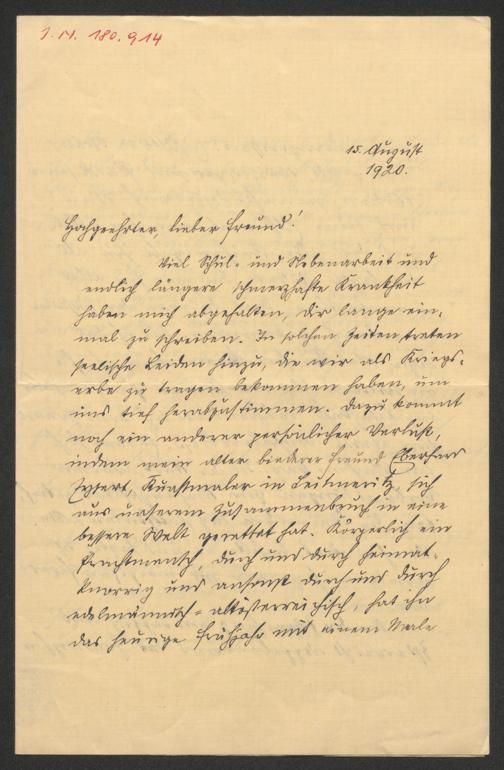 I. N. 180.914
15. August
1920.
Hochgeehrter, lieber Freund!
Viel Schul- und Nebenarbeit und
endlich längere schmerzhafte Krankheit
haben mich abgehalten, Dir lange ein-
mal zu schreiben. In solchen Zeiten treten
seelische Leiden hinzu, die wir als Kriegs-
erbe zu tragen bekommen haben, um
uns tief herabzustimmen. Dazu kommt
noch ein anderer persönlicher Verlust,
indem mein alter biederer Freund Eberhard
Kunstmaler in Leitmeritz, sich
aus unserem Zusammenbruch in eine
bessere Welt gerettet hat. Körperlich ein
Prachtmensch, durch und durch heimat-
knorrig und ansonst durch und durch
edelmännisch-altösterreichisch, hat ihn
das heurige Frühjahr mit einem Male